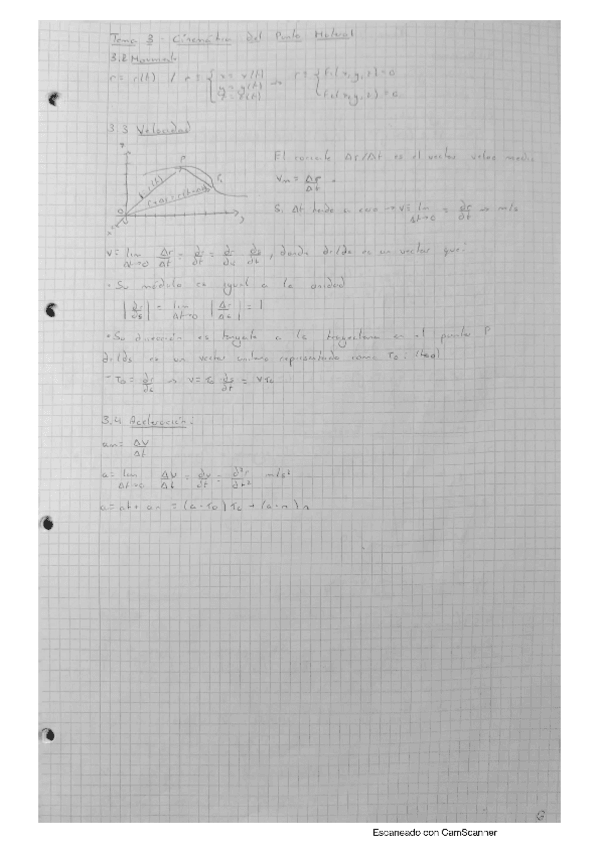 Tema 3 - Cinemática del Punto Material
3.2 Movimiento
r = r(t) / r = { x = x(t) y = y(t) z = z(t) → r = { F1(x,y,z)=0 F2(x,y,z)=0
3.3 Velocidad
P
r(t)
El cociente Δr/Δt es el vector veloc media
Vm = Δr/Δt
Si Δt tiende a cero → v = lim Δt→0 = dr/dt → m/s
v = lim Δt→0 Δr/Δt = dr/dt = dr/ds ds/dt, donde dr/ds es un vector que:
• Su módulo es igual a la unidad
|dr/ds| = lim Δt→0 |Δr/Δs| = 1
• Su dirección es tangente a la trayectoria en el punto P
dr/ds es un vector unitario representado como τo
τo = dr/ds → v = τo ds/dt = vτo
3.4 Aceleración:
am = ΔV/Δt
a = lim Δt→0 ΔV/Δt = dv/dt = d²r/dt² m/s²
a = at + an = (a · τo) τo + (a · n) n
Escaneado con CamScanner